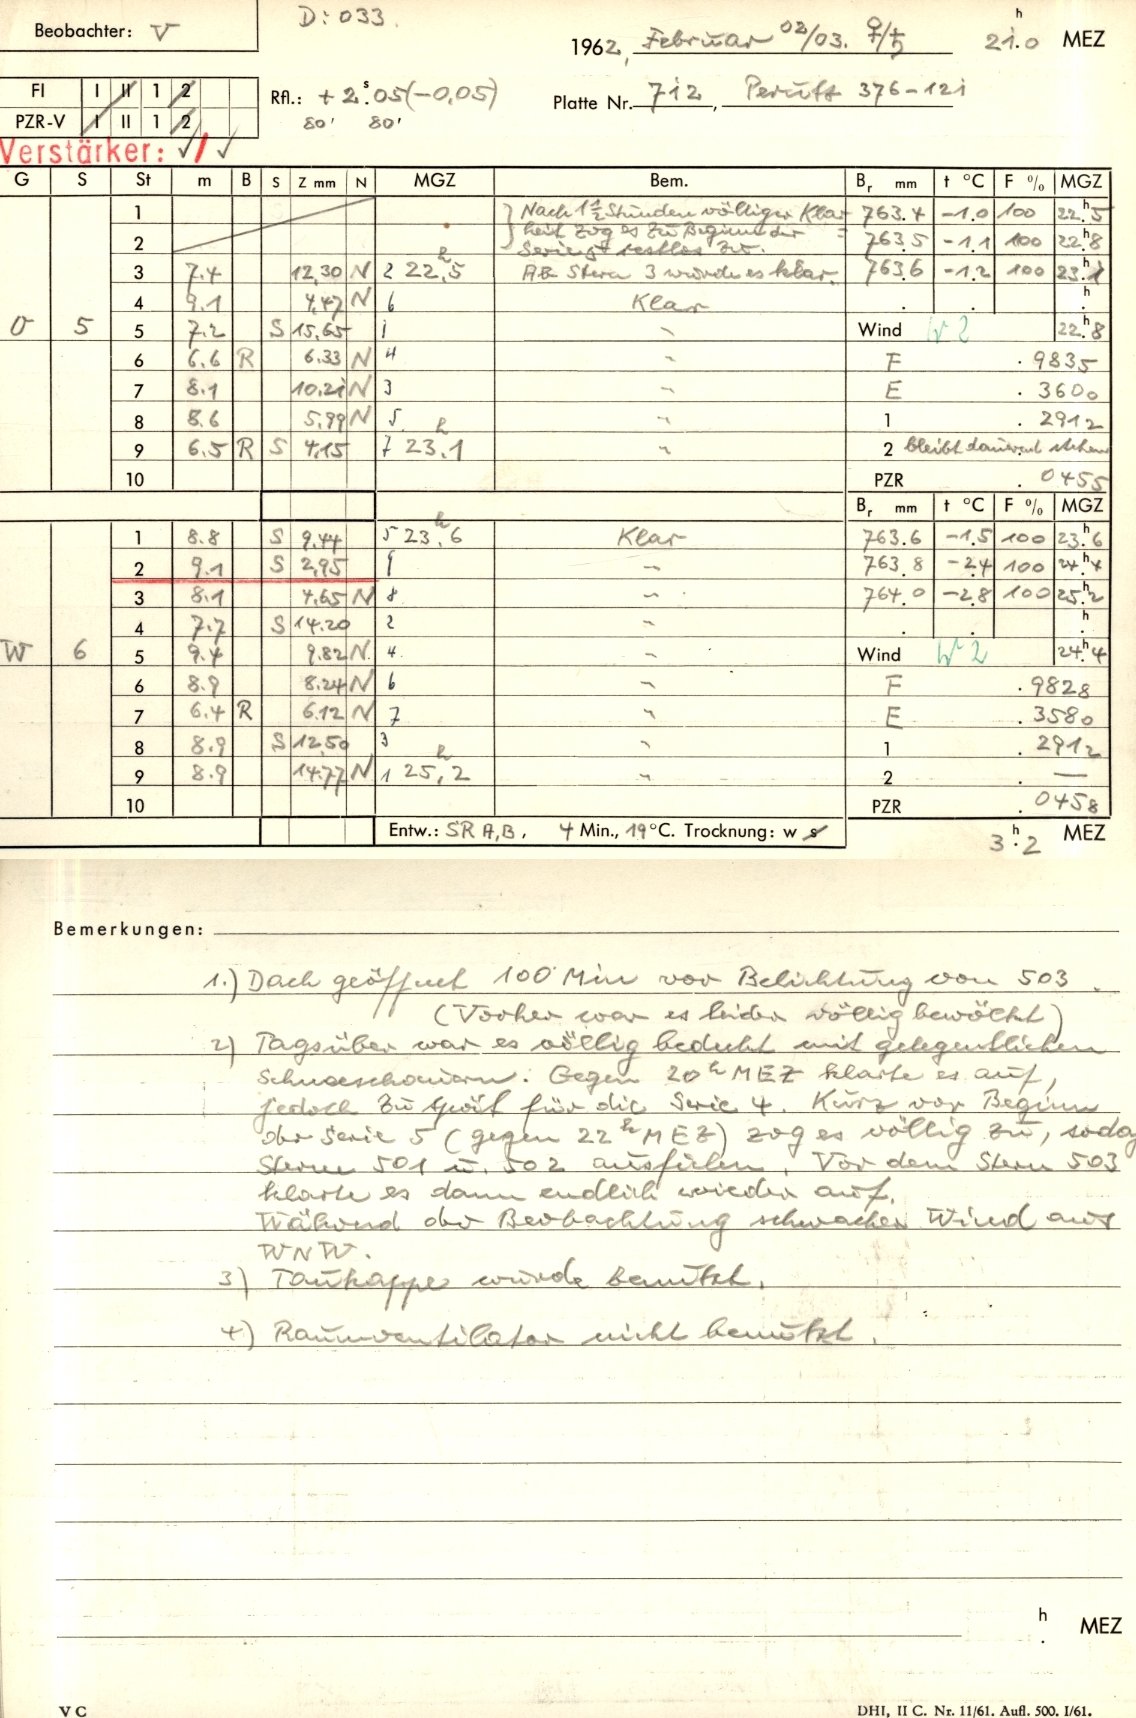 Beobachter: V
D: 033.
1962, Februar 02/03. ♀/♄ 21ʰ.0 MEZ
FI I II 1 2
PZR-V I II 1 2
Rfl.: + 2ˢ.05 (-0,05)
80' 80'
Platte Nr. 712, Perutz 376-121
Verstärker: ✓/✓
G S St m B S Z mm N MGZ Bem. Bᵣ mm t °C F % MGZ
1 Nach 1½ Stunden völliger Klar- 763.4 -1.0 100 22ʰ.5
2 heit zog es zu Beginn der 763.5 -1.1 100 22ʰ.8
Serie restlos zu.
3 7.4 12,30 N 2 22ʰ,5 Ab Stern 3 wurde es klar. 763.6 -1.2 100 23ʰ.1
4 9.1 4,47 N 6 Klar . . ʰ.
O 5 5 7.2 S 15,65 1 " Wind W 2 22ʰ.8
6 6.6 B R 6.33 N 4 " F .9835
7 8.1 10.21 N 3 " E .3600
8 8.6 5,99 N 5. " 1 .2912
9 6,5 R S 4,15 7 23ʰ,1 " 2 bleibt dauernd stehen
10 PZR .0455
Bᵣ mm t °C F % MGZ
1 8.8 S 9.44 5 23ʰ,6 Klar 763.6 -1.5 100 23ʰ.6
2 9.1 S 2,95 9 " 763.8 -2.4 100 24ʰ.4
3 8.1 4,65 N 8 " 764.0 -2.8 100 25ʰ.2
4 7.7 S 14.20 2 " . . ʰ.
W 6 5 9.4 9.82 N 4. " Wind W 2 24ʰ.4
6 8.9 8.24 N 6 " F .9828
7 6.4 R 6.12 N 7 " E .3580
8 8.9 S 12,50 3 " 1 .2912
9 8.9 14.77 N 1 25ʰ,2 " 2 . —
10 PZR .0458
Entw.: SR A,B, 4 Min., 19 °C. Trocknung: w s
3ʰ.2 MEZ
Bemerkungen:
1.) Dach geöffnet 100 Min vor Belichtung von 503.
(Vorher war es leider völlig bewölkt)
2) Tagsüber war es völlig bedeckt mit gelegentlichen
Schneeschauern. Gegen 20ʰ MEZ klarte es auf,
jedoch zu spät für die Serie 4. Kurz vor Beginn
der Serie 5 (gegen 22ʰ MEZ) zog es völlig zu, sodaß
Sterne 501 u. 502 ausfielen. Vor dem Stern 503
klarte es dann endlich wieder auf.
Während der Beobachtung schwacher Wind aus
WNW.
3) Taukappe wurde benutzt.
4) Raumventilator nicht benutzt.
ʰ. MEZ
V C
DHI, II C. Nr. 11/61. Aufl. 500. I/61.